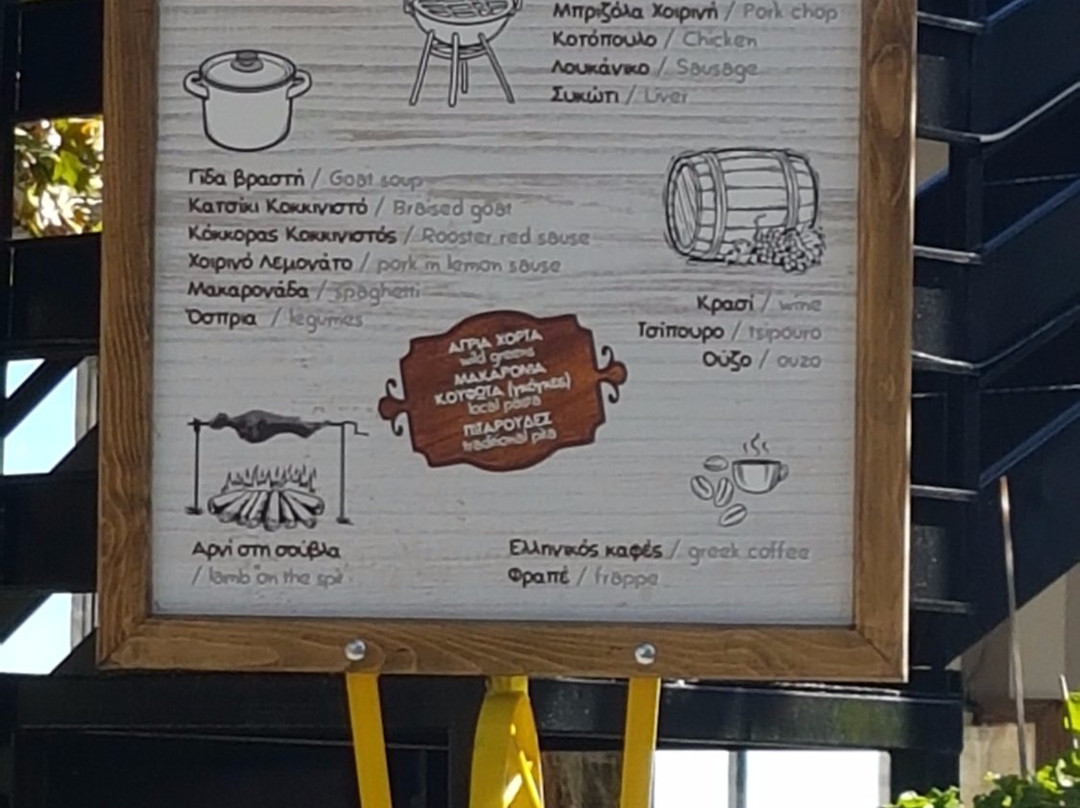 Μπριζόλα Χοιρινή / Pork chop
Κοτόπουλο / Chicken
Λουκάνικο / Sausage
Συκώτι / Liver
Γίδα βραστή / Goat soup
Κατσίκι Κοκκινιστό / Braised goat
Κόκκορας Κοκκινιστός / Rooster red sause
Χοιρινό Λεμονάτο / pork in lemon sause
Μακαρονάδα / spaghetti
Όσπρια / legumes
Κρασί / wine
Τσίπουρο / tsipouro
Ούζο / ouzo
ΑΓΡΙΑ ΧΟΡΤΑ
wild greens
ΜΑΚΑΡΟΝΙΑ
ΚΟΥΦΩΤΑ (γκόγκες)
local pasta
ΠΙΤΑΡΟΥΔΕΣ
traditional pita
Αρνί στη σούβλα
/ lamb on the spit
Ελληνικός καφές / greek coffee
Φραπέ / frappe